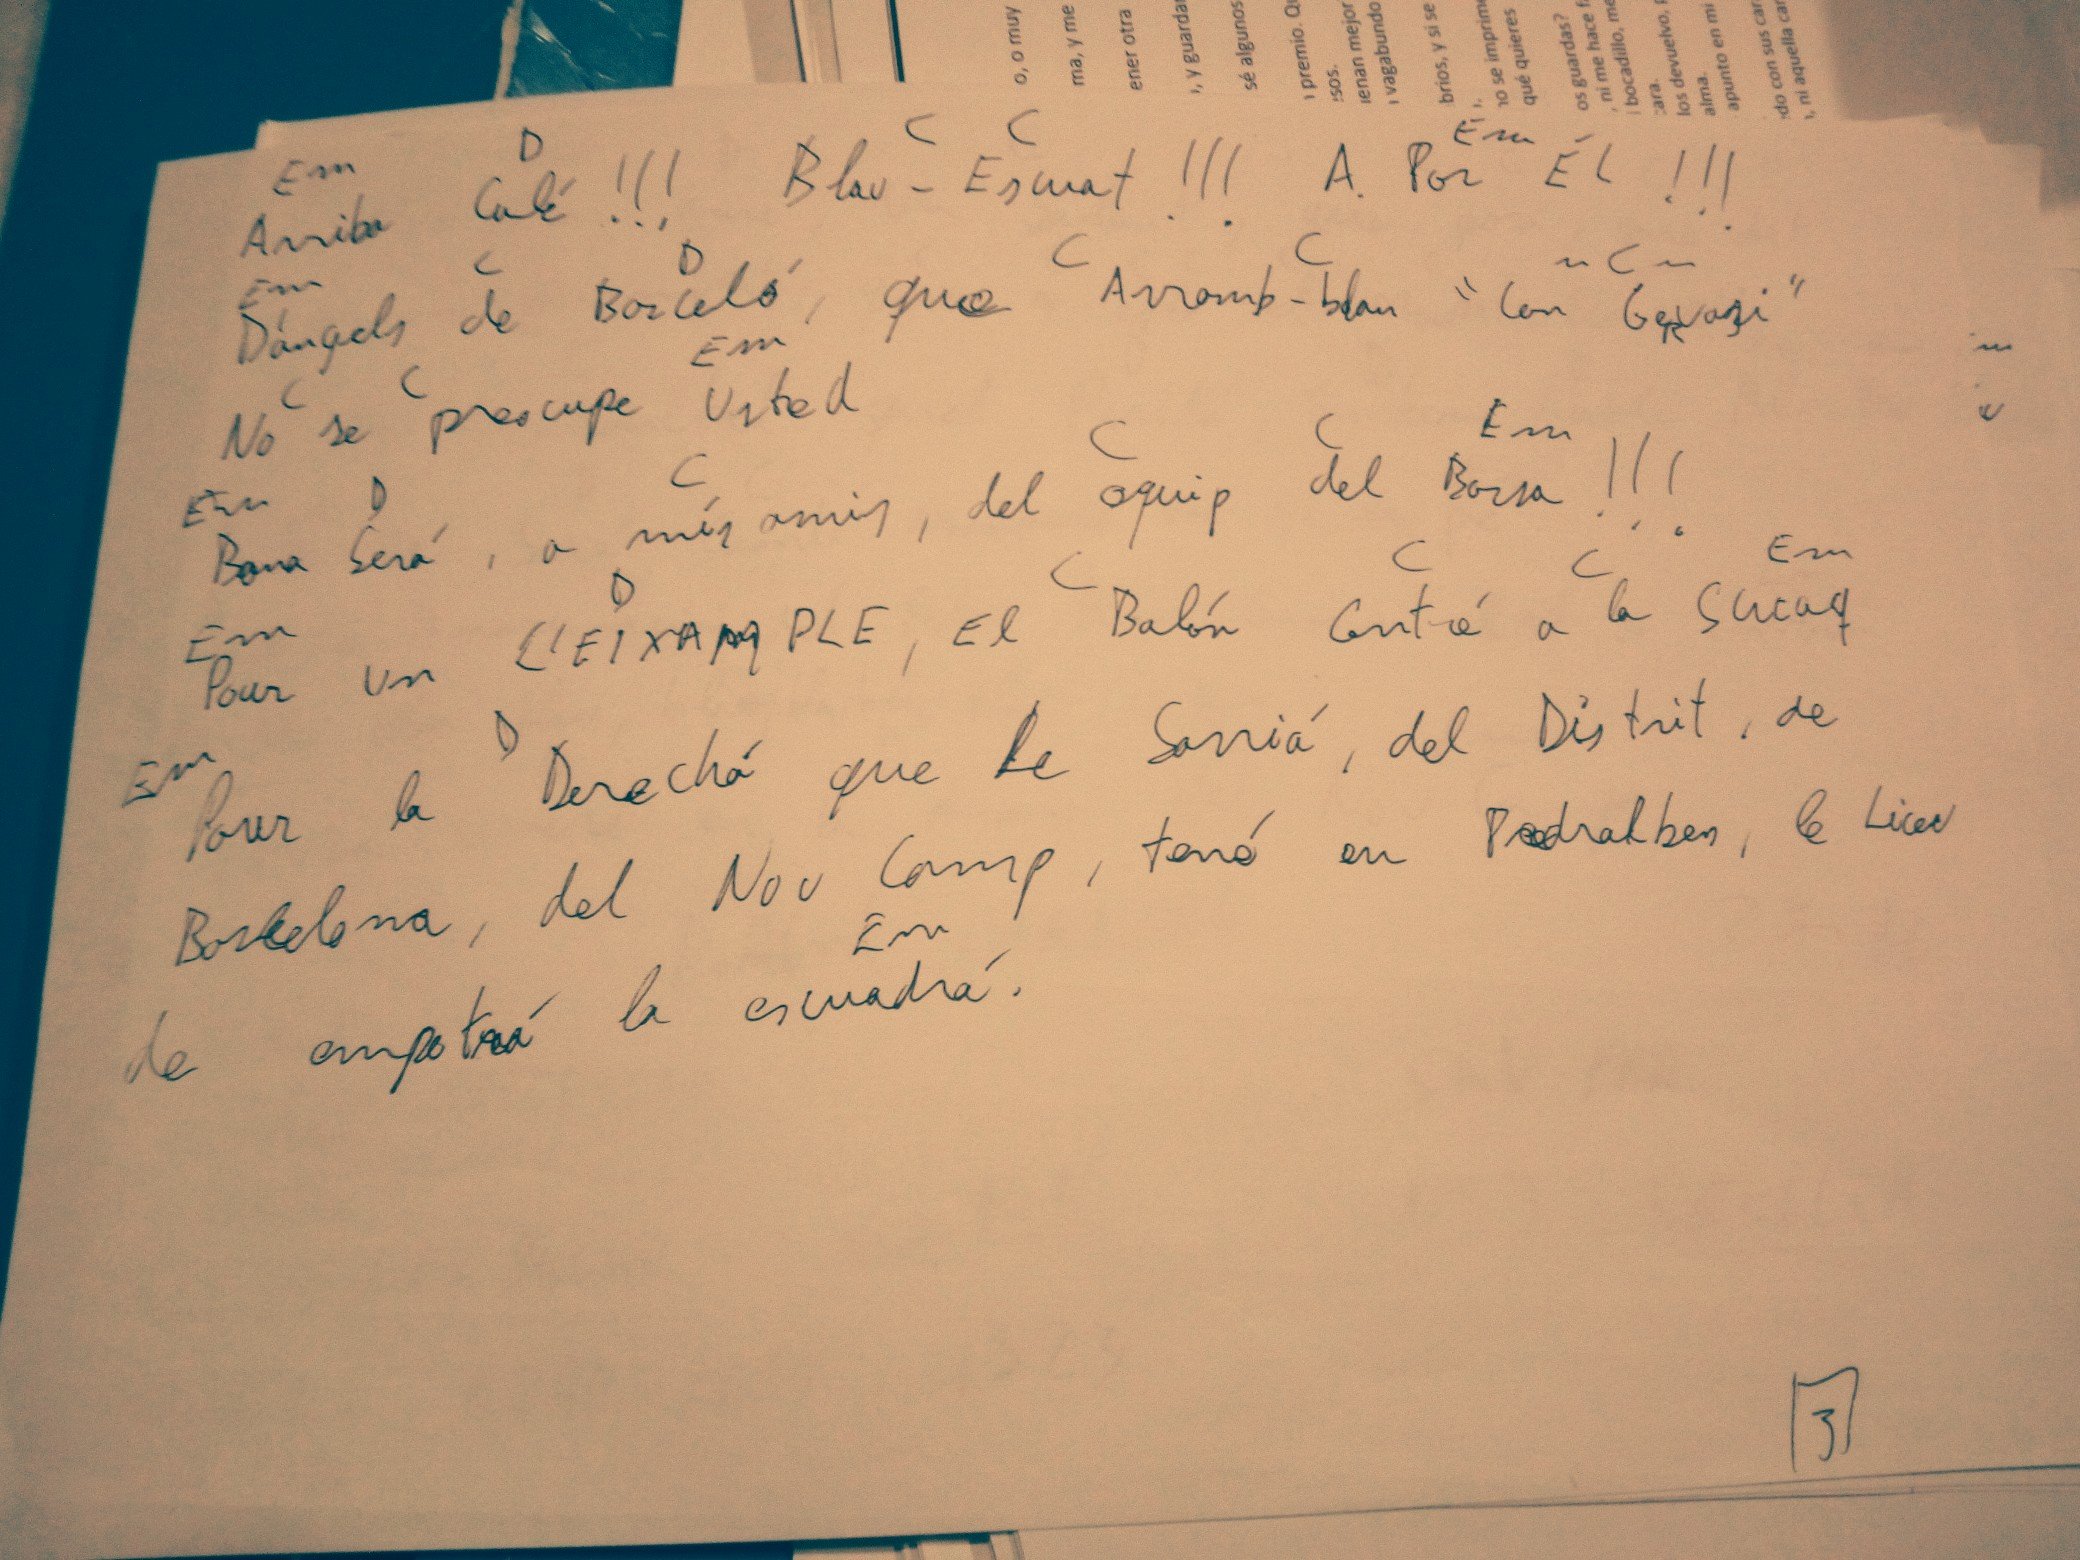 o, o muy
ma, y me
ener otra
, y guardar
sé algunos
premio.
sos.
ienan mejor
vagabundo
brios, y si se
no se imprime
qué quieres
os guardas?
, ni me hace
bocadillo, me
cara.
los devuelvo,
alma.
apunto en mi
do con sus
, ni aquella
Em D C C Em
Arriba Culé !!! Blau - Escuat !!! A Por Él !!!
Em C D C C C
Dángels de Barceló, que Arramb-blau "Con Gervasi"
C C Em
No se preocupe Usted
Em D C C C Em
Bona Será, a més amis, del equip del Barsa !!!
Em D C C C Em
Pour un L'EIXAMPLE, El Balón Contré a la
Em D
Pour la Derechá que le Sarriá, del Distrit, de
Barcelona, del Nou Camp, tené en Pedralbes, le Liceu
Em
de empotrá la escuadrá.
3